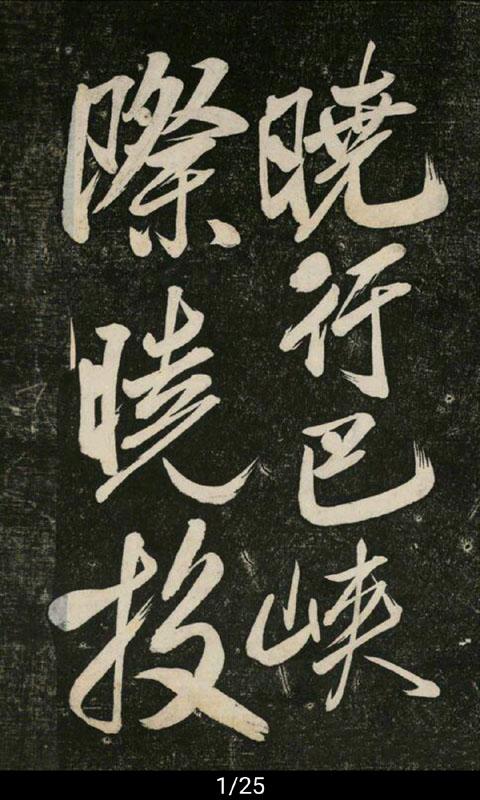 曉行巴峽
際曉投
1/25